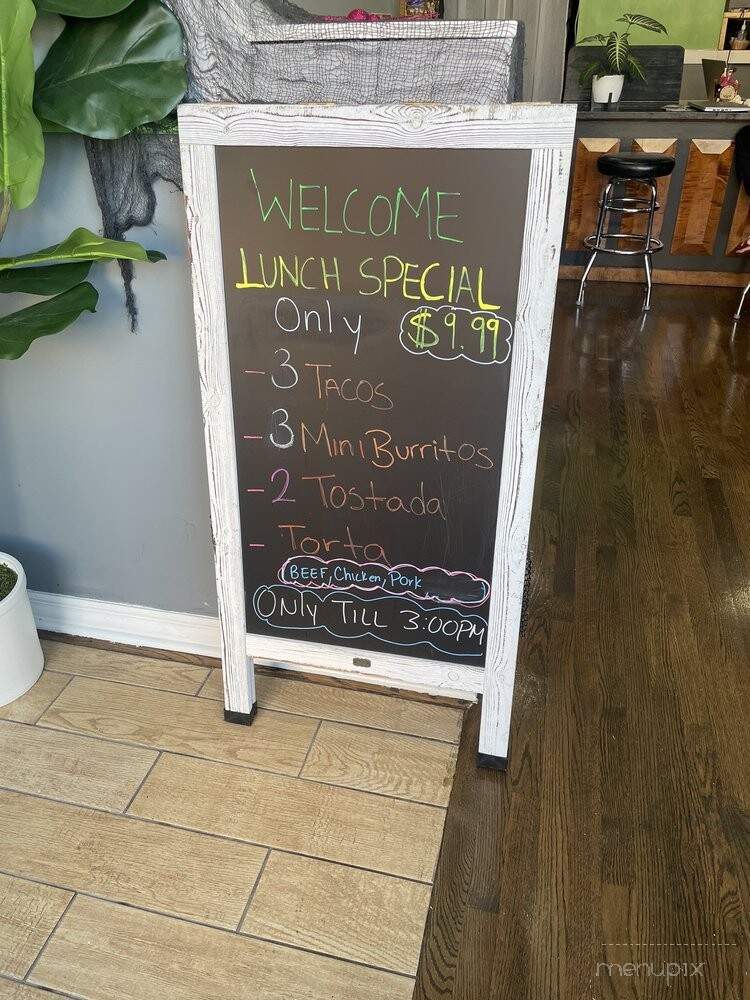 WELCOME
LUNCH SPECIAL
Only $9.99
- 3 TACOS
- 3 Mini Burritos
- 2 Tostada
- Torta
BEEF, Chicken, Pork
ONLY TILL 3:00PM
menupix